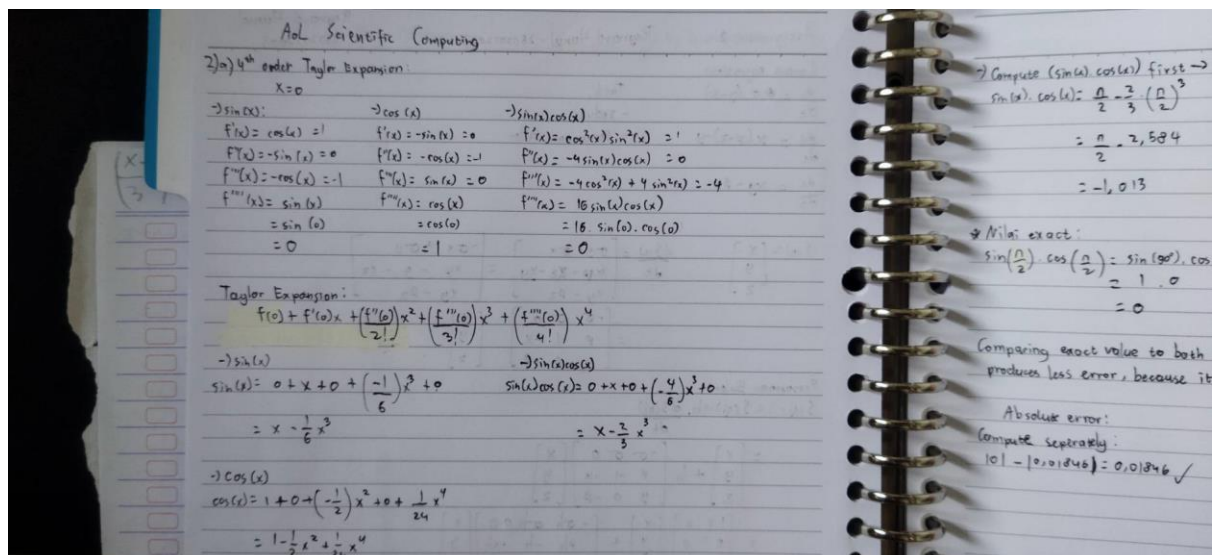 AoL Scientific Computing
2) a) 4th order Taylor Expansion:
x=0
→ sin(x):
f'(x) = cos(x) = 1
f''(x) = -sin(x) = 0
f'''(x) = -cos(x) = -1
f''''(x) = sin(x)
= sin(0)
= 0
→ cos(x)
f'(x) = -sin(x) = 0
f''(x) = -cos(x) = -1
f'''(x) = sin(x) = 0
f''''(x) = cos(x)
= cos(0)
= 1
→ sin(x)cos(x)
f'(x) = cos²(x) sin²(x) = 1
f''(x) = -4 sin(x) cos(x) = 0
f'''(x) = -4 cos²(x) + 4 sin²(x) = -4
f''''(x) = 16 sin(x) cos(x)
= 16. sin(0). cos(0)
= 0
Taylor Expansion:
f(0) + f'(0)x + (f''(0)/2!) x² + (f'''(0)/3!) x³ + (f''''(0)/4!) x⁴
→ sin(x)
sin(x) = 0 + x + 0 + (-1/6) x³ + 0
= x - 1/6 x³
→ sin(x)cos(x)
sin(x) cos(x) = 0 + x + 0 + (-4/6) x³ + 0
= x - 2/3 x³
→ cos(x)
cos(x) = 1 + 0 + (-1/2) x² + 0 + 1/24 x⁴
= 1 - 1/2 x² + 1/24 x⁴
→ Compute (sin(x). cos(x)) first →
sin(x). cos(x) = π/2 - 2/3 . (π/2)³
= π/2 - 2,584
= -1,013
* Nilai exact:
sin(π/2). cos(π/2) = sin(90°). cos
= 1 . 0
= 0
Comparing exact value to both
produces less error, because it
Absolute error:
Compute seperately:
|0| - |0,01846| = 0,01846 ✓